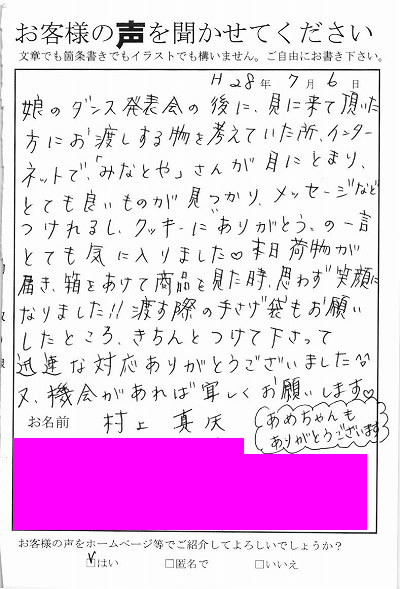 お客様の声を聞かせてください
文章でも箇条書きでもイラストでも構いません。ご自由にお書き下さい。
H 28年 7月 6日
娘のダンス発表会の後に、見に来て頂いた
方にお渡しする物を考えていた所、インター
ネットで、「みなとや」さんが目にとまり、
とても良いものが見つかり、メッセージなど
つけれるし、クッキーに"ありがとう"の一言
とても気に入りました♡本日荷物が
届き、箱をあけて商品を見た時、思わず笑顔に
なりました!!渡す際の手さげ袋もお願い
したところ、きちんとつけて下さって
迅速な対応ありがとうございました^^
又、機会があれば宜しくお願いします♡
お名前 村上 真
あめちゃんも
ありがとうございます
お客様の声をホームページ等でご紹介してよろしいでしょうか?
☑はい □匿名で □いいえ